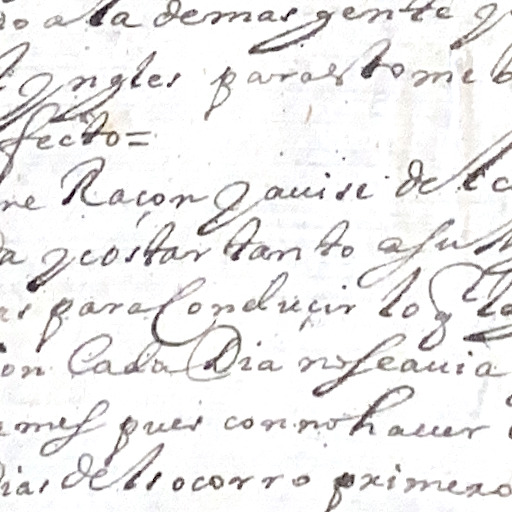 a la demas gente y
yngles para esto me
fecto=
Raçon y auise de
y costar tanto a su
para Conduçir lo q
on Cada Dia no se auia
mes pues con no hauer
dias del socorro primero